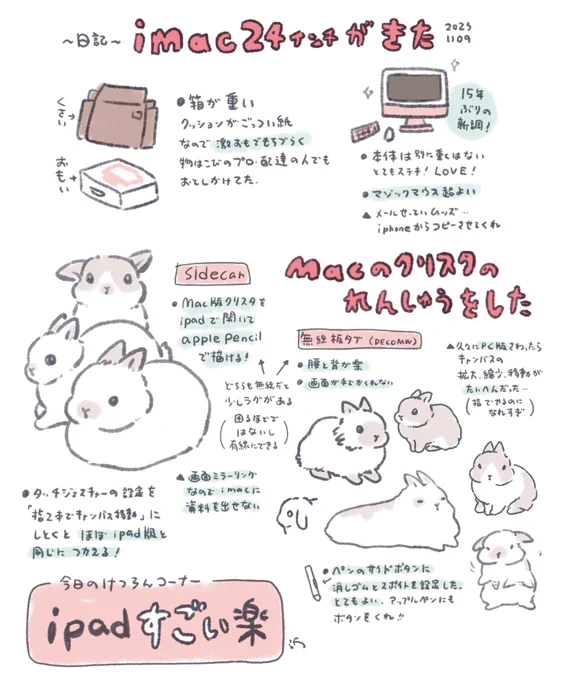 ～日記～
imac24インチがきた
2023
1109
くさい
おもい
●箱が重い
クッションがごっつい紙
なので激おもでもちづらく
物はこびのプロ・配達の人でも
おとしかけてた.
15年
ぶりの
新調!
●本体は別に重くはない
とてもステキ! LOVE!
●マジックマウス超よい
▲メールせっていムッズ…
iphoneからコピーさせてくれ
Sidecar
●Mac版クリスタを
ipadで開いて
apple pencil
で描ける!
どちらも無線だと
少しラグがある
(困るほどで
はないし
有線にできる)
▲画面ミラーリング
なのでimacに
資料を出せない
●タッチジェスチャーの設定を
「指2本でキャンバス移動」に
しとくとほぼipad版と
同じにつかえる!
Macのクリスタの
れんしゅうをした
無線板タブ(DECOMW)
●腰と背が楽
●画面が手でかくれない
▲久々にPC版さわったら
キャンバスの
拡大、縮小、移動が
たいへんだった…
(指でやるのに
なれすぎ)
●ペンのサイドボタンに
消しゴムとスポイトを設定した。
とてもよい、アップルペンにも
ボタンをくれ!!
今日のけつろんコーナー
ipadすごい楽